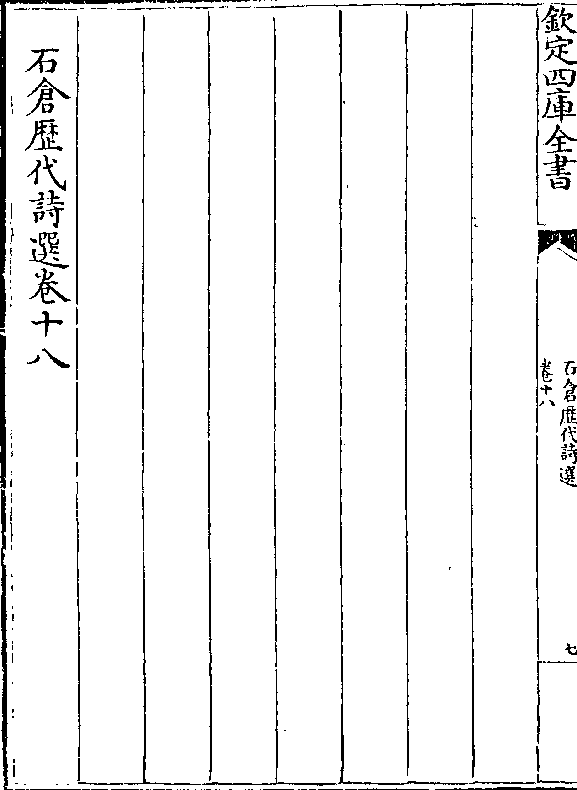 欽定四庫全書
石倉歴代詩選
卷十八
七
石倉歴代詩選卷十八